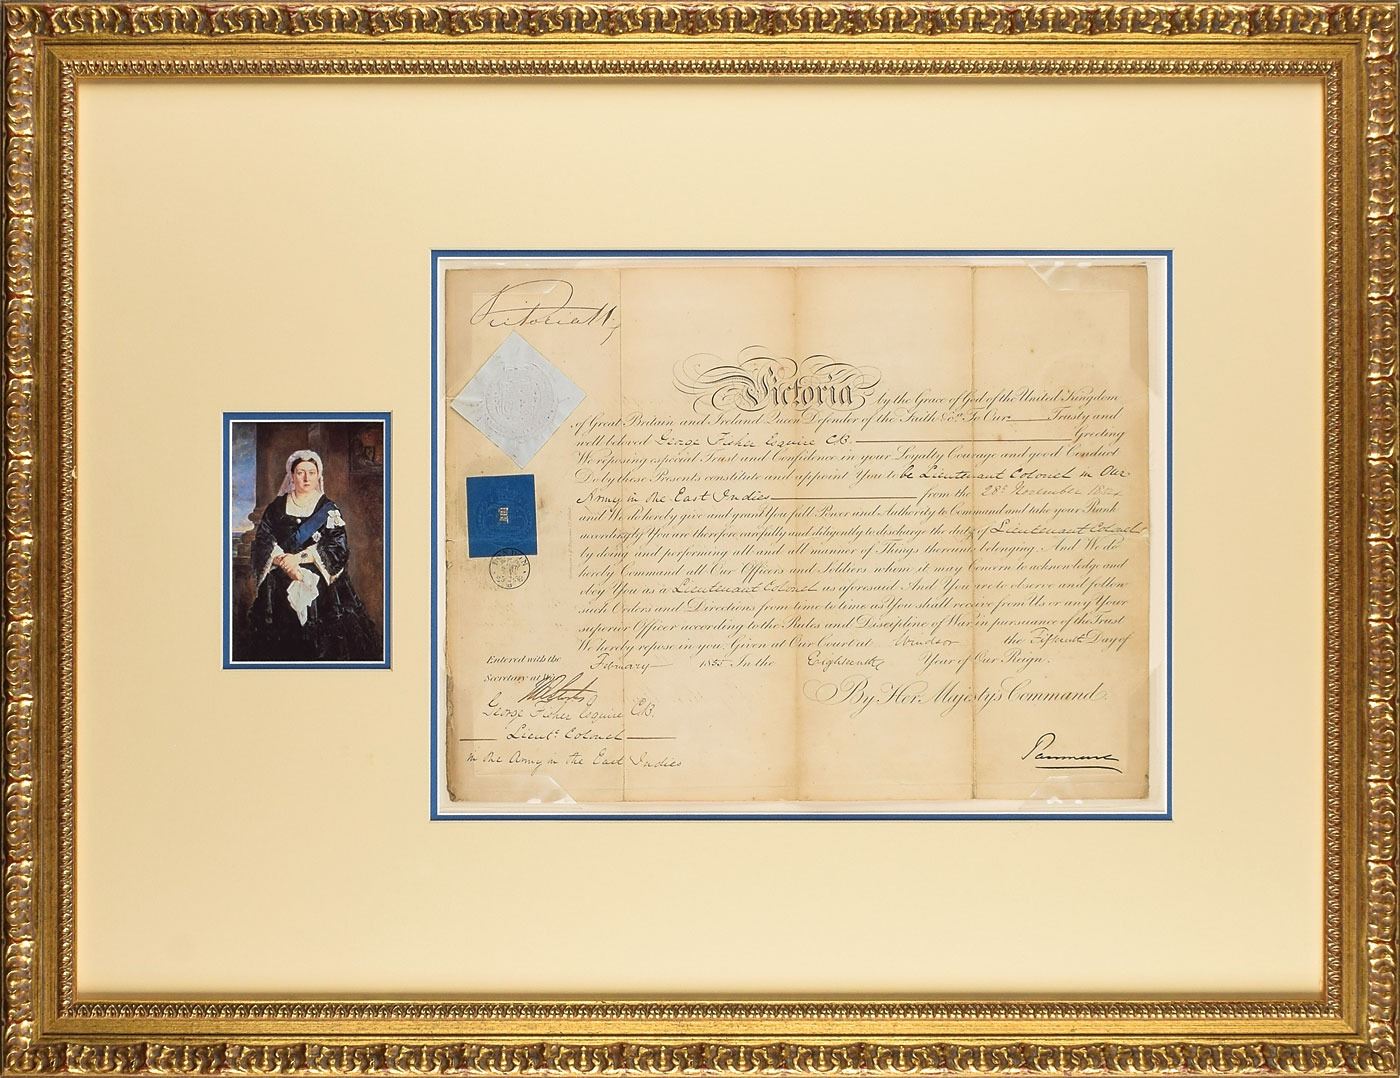 Victoria R
Victoria by the Grace of God of the United Kingdom
of Great Britain and Ireland Queen Defender of the Faith &c. To Our Trusty and
well beloved George Fisher Esquire C.B. Greeting
We reposing especial Trust and Confidence in your Loyalty Courage and good Conduct
Do by these Presents constitute and appoint You to be Lieutenant Colonel in Our
Army in the East Indies from the 28th November 1854
and We do hereby give and grant You full Power and Authority to Command and take your Rank
accordingly. You are therefore carefully and diligently to discharge the duty of Lieutenant Colonel
by doing and performing all and all manner of Things thereunto belonging. And We do
hereby Command all Our Officers and Soldiers whom it may Concern to acknowledge and
obey You as a Lieutenant Colonel as aforesaid And You are to observe and follow
such Orders and Directions from time to time as You shall receive from Us or any Your
superior Officer according to the Rules and Discipline of War in pursuance of the Trust
We hereby repose in you. Given at Our Court at Windsor the Fifteenth Day of
February 1855 In the Eighteenth Year of Our Reign.
Entered with the
Secretary at War
By Her Majesty's Command.
George Fisher Esquire C.B.
Lieutt. Colonel
in the Army in the East Indies
Panmure